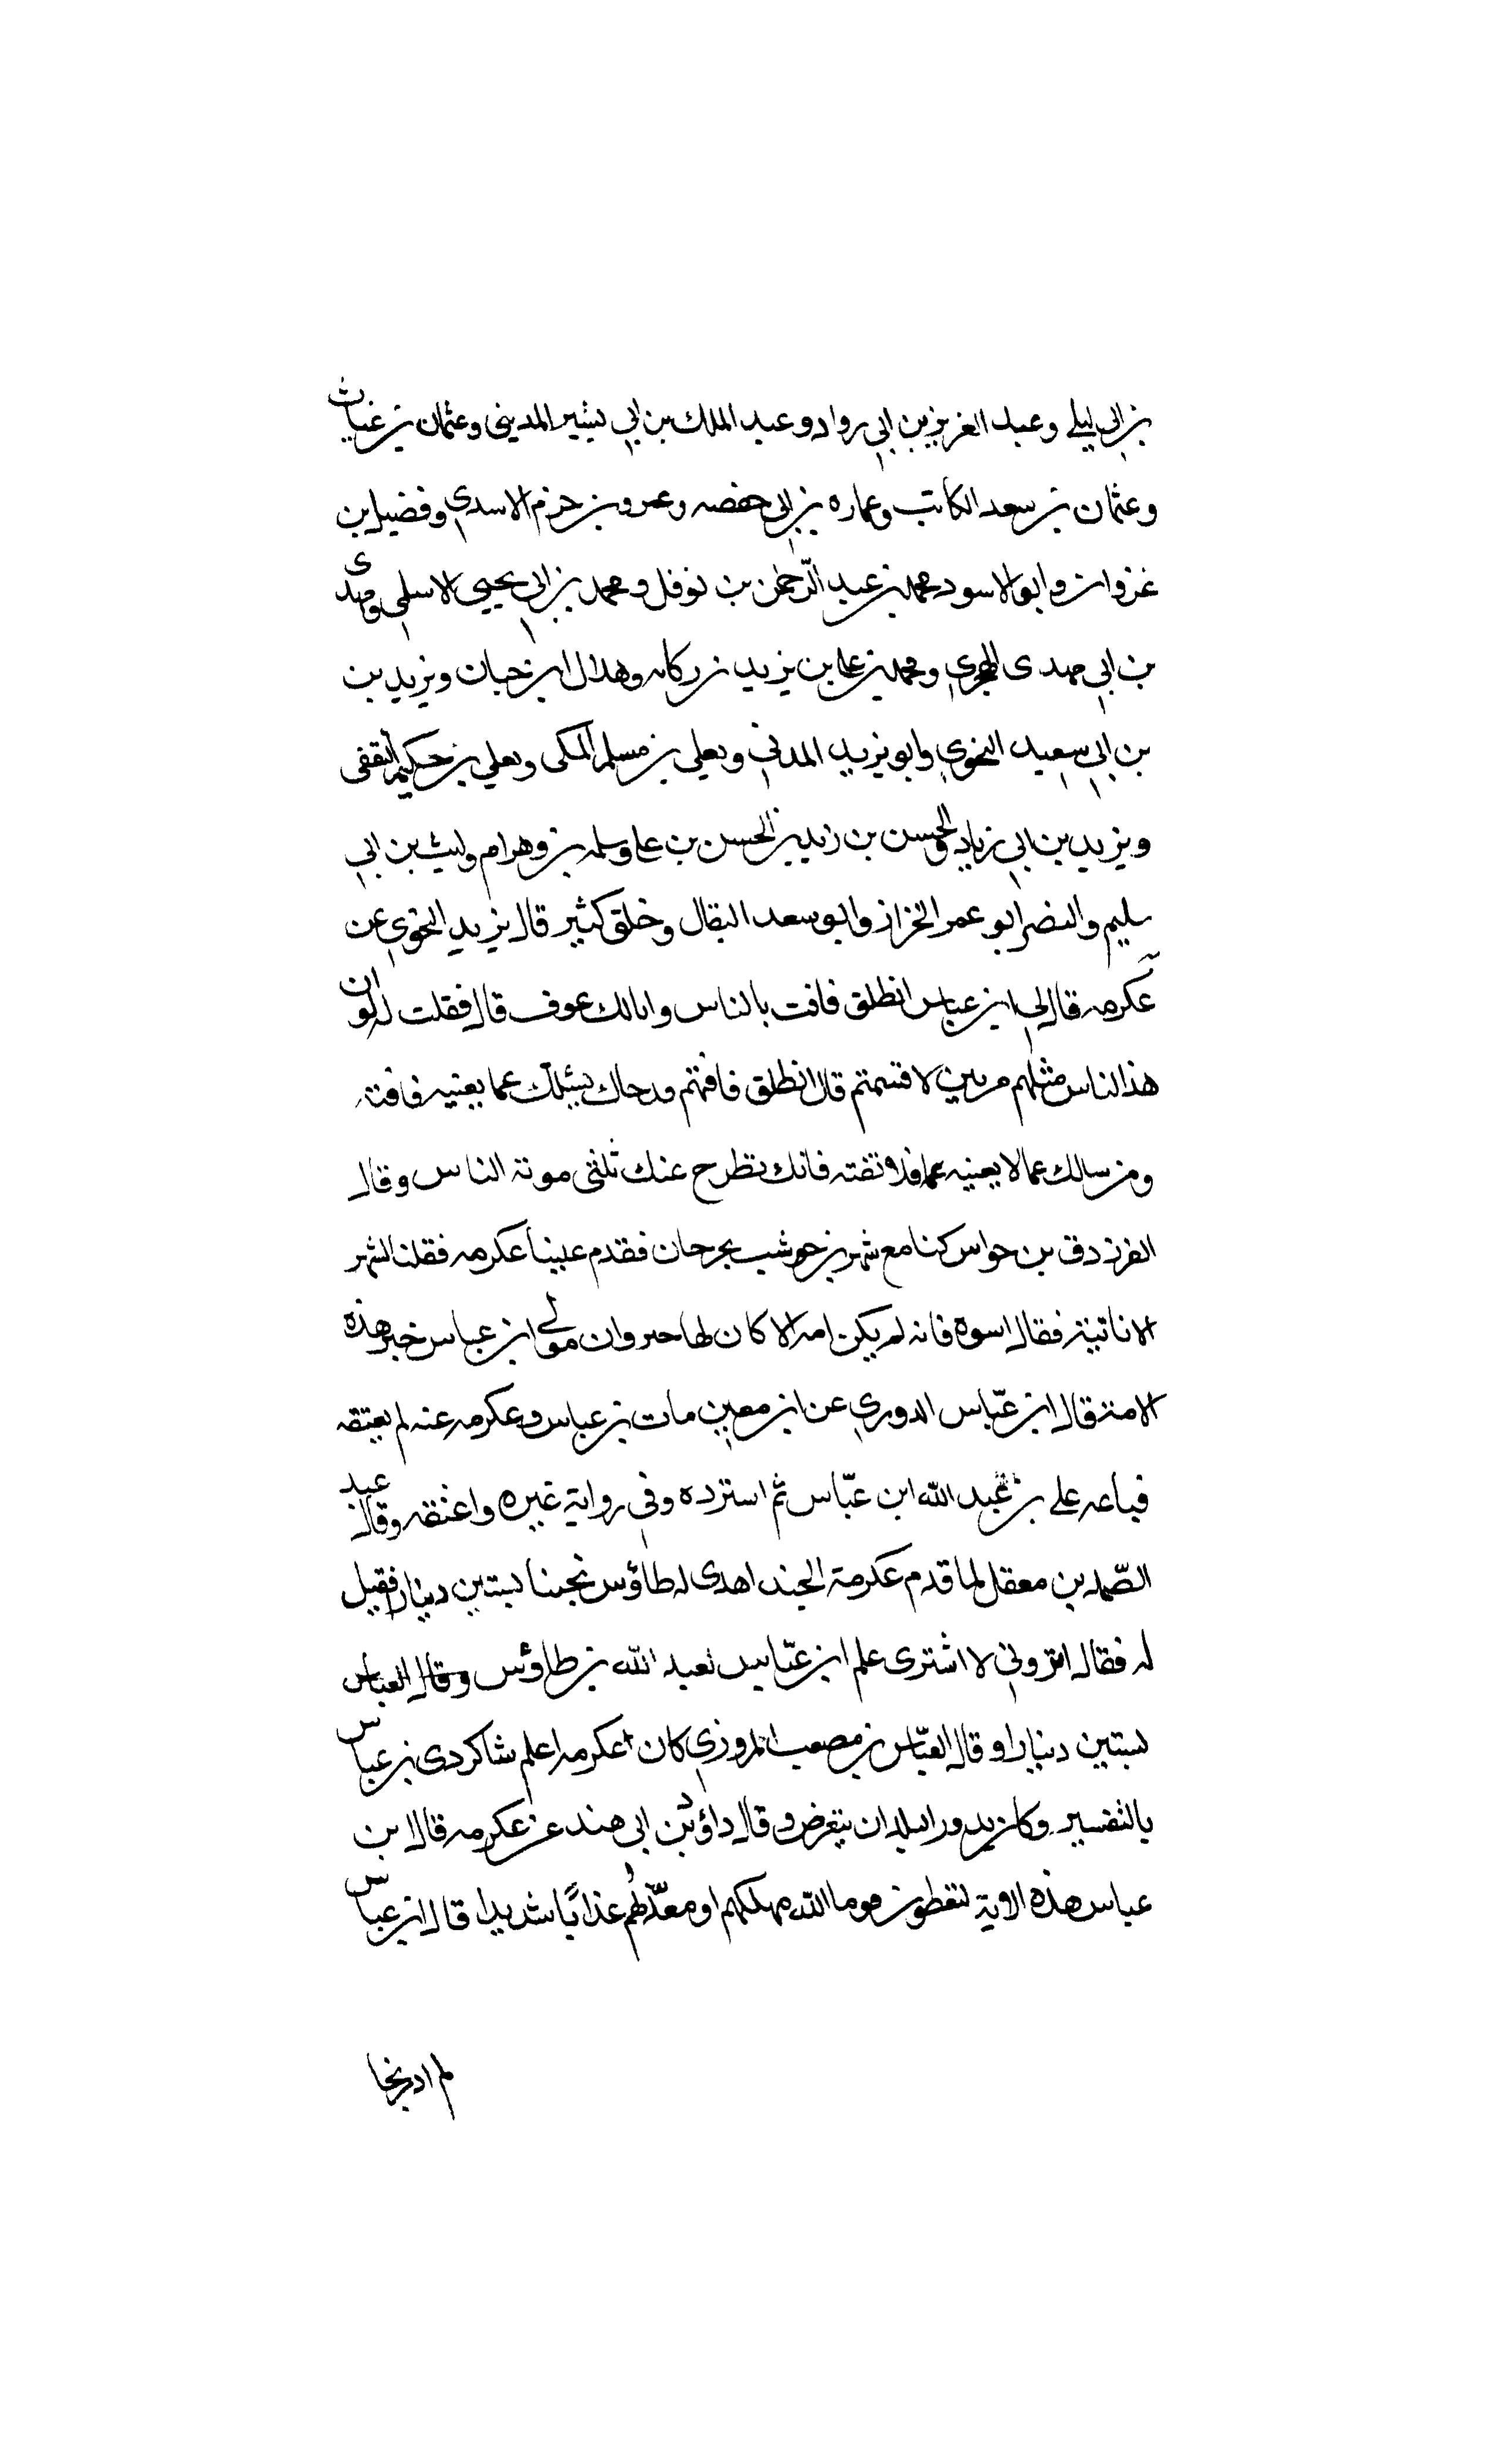 بن ابي ليلي وعبد العزيز بن ابي رواد وعبد الملك بن ابي بشير المديني وعثمان بن غياث
وعثمان بن سعد الكاتب وعماره بن ابي حفصه وعمرو بن حزم الاسدي وفضيل بن
غزوان وابو الاسود محمد بن عبد الرّحمن بن نوفل ومحمد بن ابي يحيي الاسلمي ومهدى
بن ابي مهدى الهجري ومحمد بن علي بن يزيد بن ركانه وهلال ابن حبان ويزيد بن
بن ابي سعيد النحوي وابو يزيد المدني ويعلي بن مسلم المكى ويعلي بن حكيم الثقفى
ويزيد بن ابي زياد والحسن بن زيد بن الحسن بن علي وسلمه بن وهرام وليث بن ابي
سليم والنضر ابو عمر الخزاز وابو سعد البقال وخلق كثير قال يزيد النحوي عن
عكرمه قال لي ابن عباس انطلق فافت بالناس وانا لك عوف قال فقلت له لو ان
هذا الناس مثلهم مرتين لافتيتهم قال انطلق فافتهم من جاك يسئلك عما يعنيه فافته
ومن سالك عما لا يعنيه فلا تفته فانك تطرح عنك ثلثى مونة الناس وقال
الفرزدق بن حواس كنا مع شهر بن حوشب بجرجان فقدم علينا عكرمه فقلنا لشهر
الا ناتيه فقال اسوه فانه لم يكن امه الا كان لها حبر وان مولي ابن عباس خبر هذه
الامة قال ابن عبّاس الدوري عن ابن معين مات بن عباس وعكرمه عنه لم يعتقه
فباعه علي بن عبد الله ابن عبّاس ثم استرده وفي رواية غيره واعتقه وقال عبد
الصّمد بن معقل لما قدم عكرمة الجند اهدى له طاؤس نجيبا بستين دينارا فقيل
له فقال اتروني لا اشترى علم ابن عبّاس لعبد الله بن طاؤس وقال العباس
بستين دينارا وقال العبّاس بن مصعب المروزي كان عكرمه اعلم شاكردى بن عباس
بالتفسير وكان يدور البلدان يتعرض وقال داؤد بن ابي هند عن عكرمه قال بن
عباس هذه الاية لتعظون قوما الله مهلكهم او معذّبهم عذابًا شديدا قال ابن عباس
لم ادر نجا